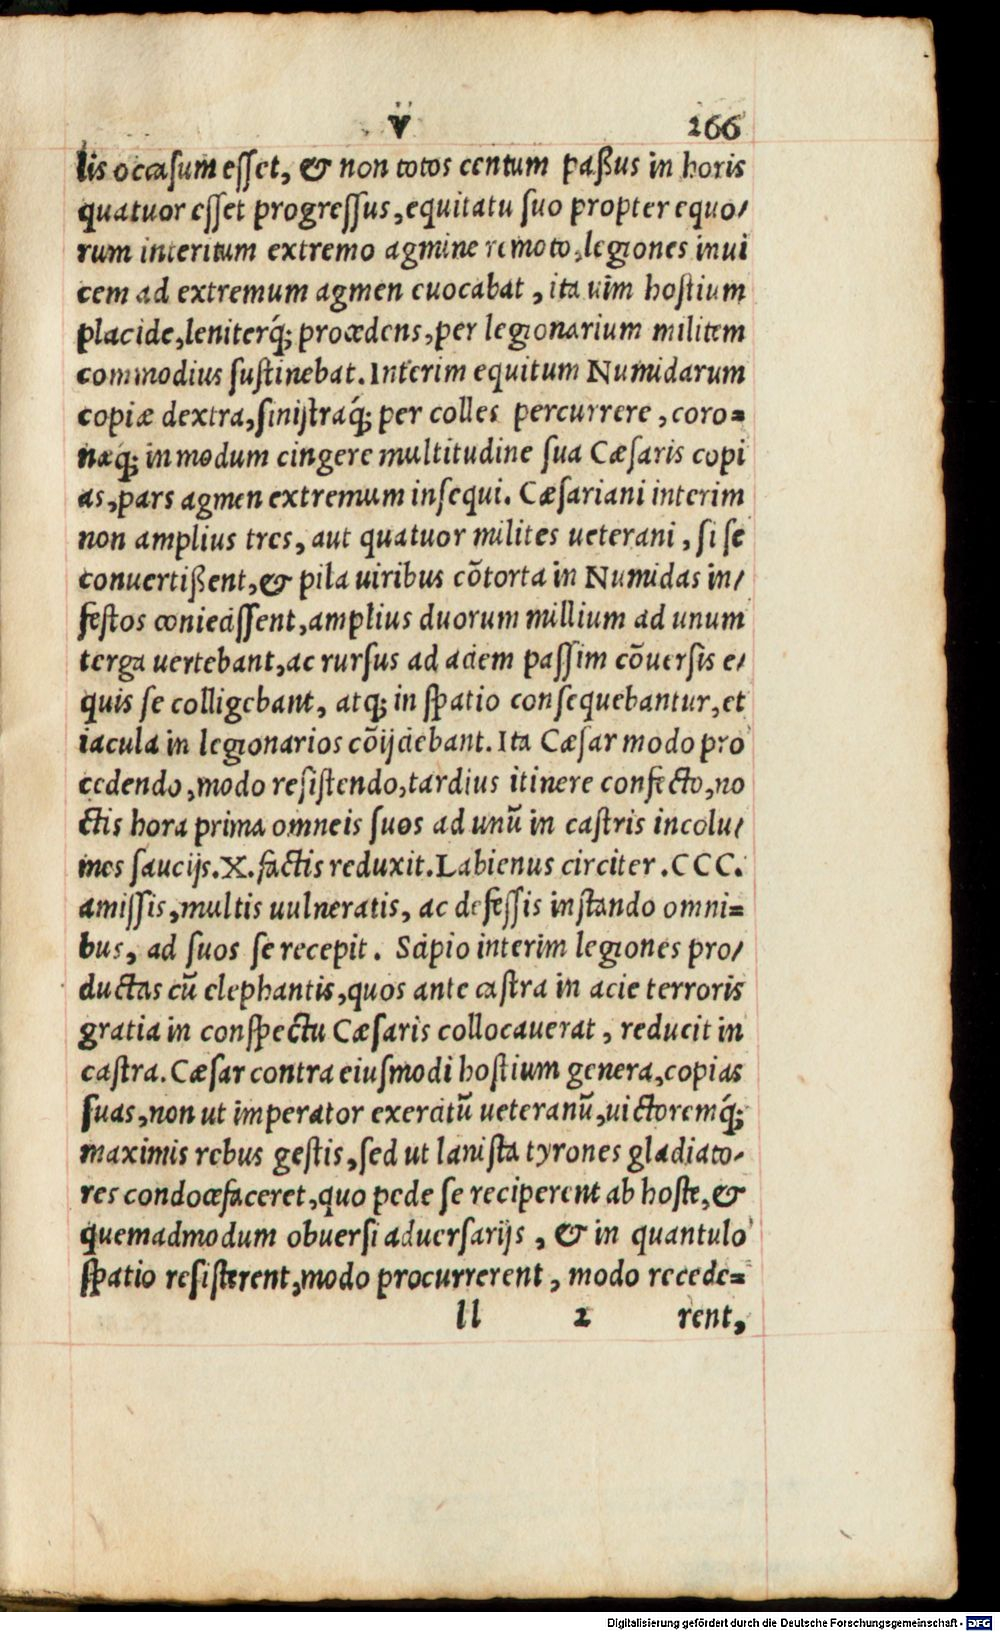 V 266
lis occasum esset, & non totos centum paßus in horis
quatuor esset progressus, equitatu suo propter equo/
rum interitum extremo agmine remoto, legiones inui
cem ad extremum agmen euocabat, ita uim hostium
placide, leniterq́; procedens, per legionarium militem
commodius sustinebat. Interim equitum Numidarum
copiæ dextra, sinistraq́; per colles percurrere, coro=
næq́; in modum cingere multitudine sua Cæsaris copi
as, pars agmen extremum insequi. Cæsariani interim
non amplius tres, aut quatuor milites ueterani, si se
conuertißent, & pila uiribus cõtorta in Numidas in/
festos coniecissent, amplius duorum millium ad unum
terga uertebant, ac rursus ad aciem passim cõuersis e/
quis se colligebant, atq; in spatio consequebantur, et
iacula in legionarios cõijciebant. Ita Cæsar modo pro
cedendo, modo resistendo, tardius itinere confecto, no
ctis hora prima omneis suos ad unũ in castris incolu/
mes saucijs. X. factis reduxit. Labienus circiter. CCC.
amissis, multis uulneratis, ac defessis instando omni=
bus, ad suos se recepit. Scipio interim legiones pro/
ductas cũ elephantis, quos ante castra in acie terroris
gratia in conspectu Cæsaris collocauerat, reducit in
castra. Cæsar contra eiusmodi hostium genera, copias
suas, non ut imperator exercitũ ueteranũ, uictoremq́;
maximis rebus gestis, sed ut lanista tyrones gladiato/
res condocefaceret, quo pede se reciperent ab hoste, &
quemadmodum obuersi aduersarijs, & in quantulo
spatio resisterent, modo procurrerent, modo recede=
ll 2 rent,
Digitalisierung gefördert durch die Deutsche Forschungsgemeinschaft - DFG